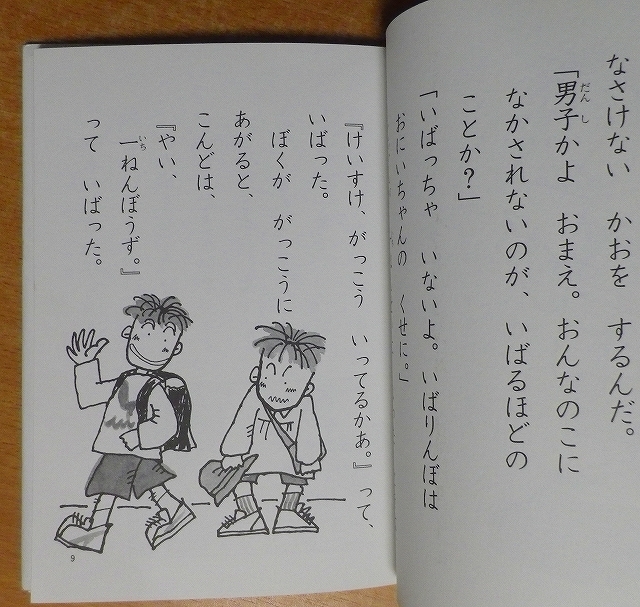 なさけない　かおを　するんだ。
「男子かよ　おまえ。おんなのこに
だんし
なかされないのが、いばるほどの
ことか？」
「いばっちゃ　いないよ。いばりんぼは
おにいちゃんの　くせに。」
『けいすけ、がっこう　いってるかあ。』って、
いばった。
ぼくが　がっこうに
あがると、
こんどは、
『やい、
一ねんぼうず。』
いち
って　いばった。
9